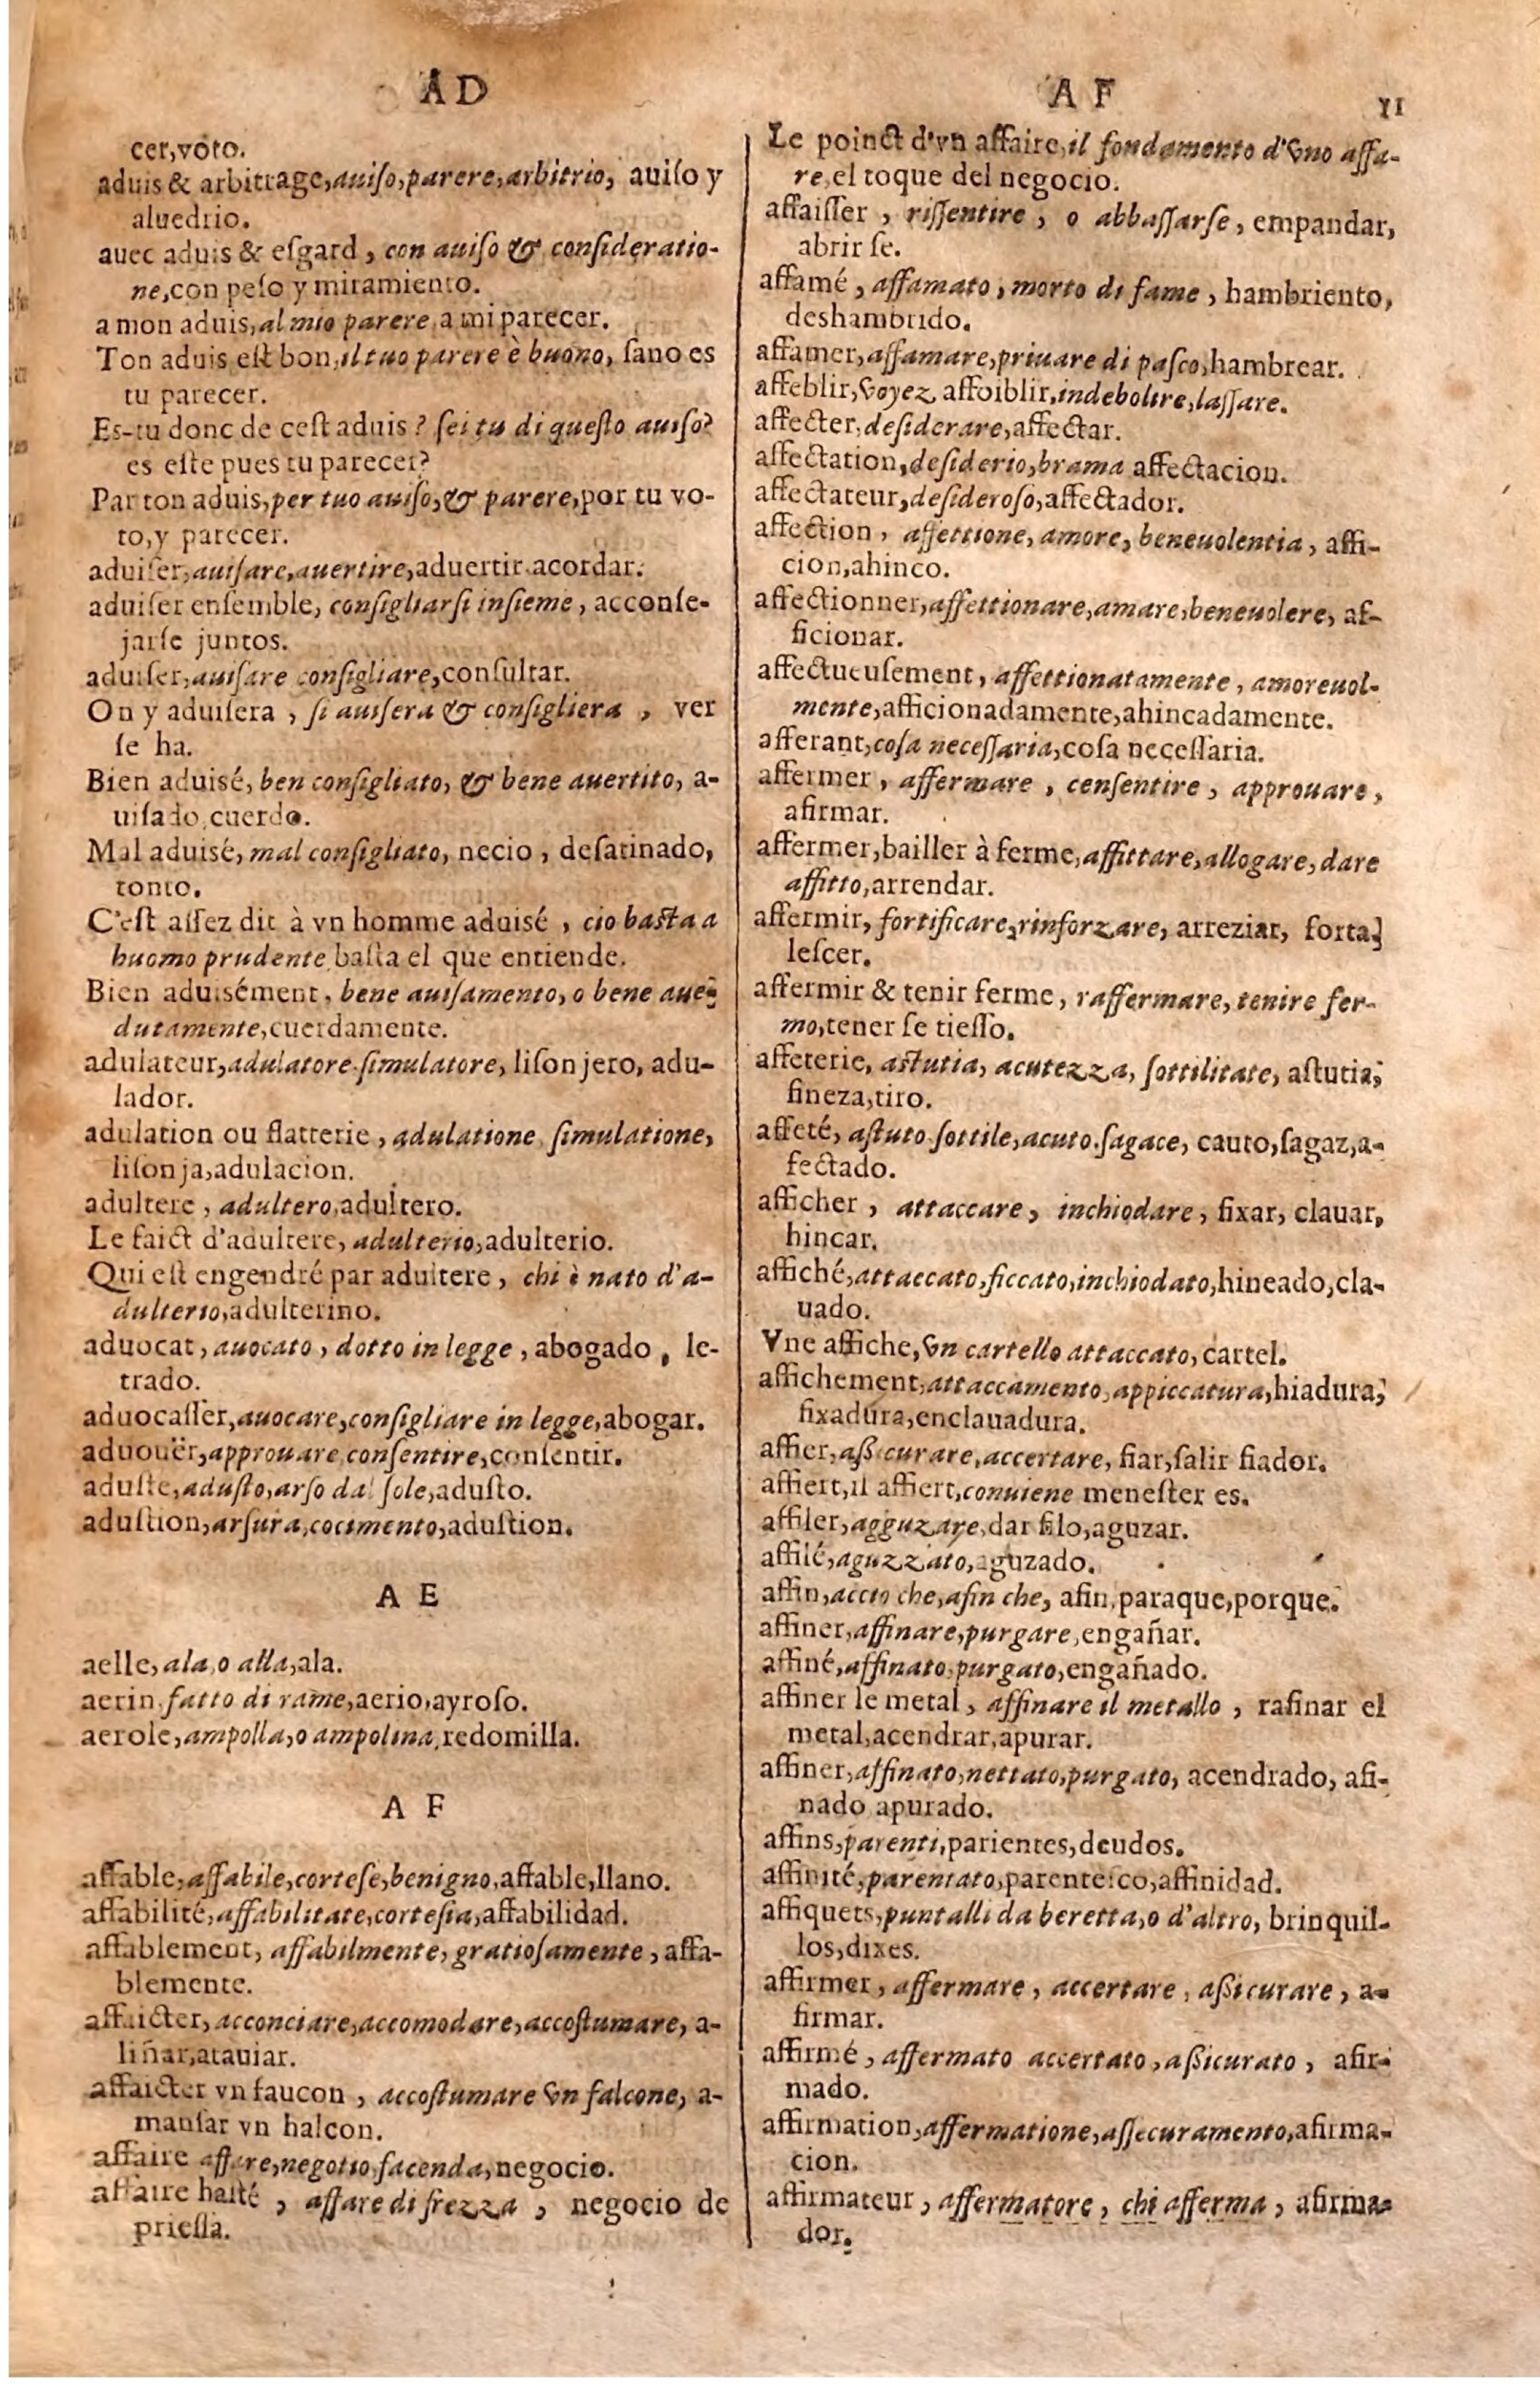 AD
cer,voto.
aduis & arbitrage,auiſo,parere,arbitrio, auiſo y
aluedrio.
auec aduis & eſgard, con auiſo & conſideratio-
ne,con peſo y miramiento.
a mon aduis,al mio parere,a mi parecer.
Ton aduis eſt bon,il tuo parere è buono, ſano es
tu parecer.
Es-tu donc de ceſt aduis? ſei tu di queſto auiſo?
es eſte pues tu parecer?
Par ton aduis,per tuo auiſo,& parere,por tu vo-
to,y parecer.
aduiſer,auiſare,auertire,aduertir.acordar.
aduiſer enſemble, conſigliarſi inſieme, acconſe-
jarſe juntos.
aduiſer,auiſare conſigliare,conſultar.
On y aduiſera, ſi auiſera & conſigliera, ver
ſe ha.
Bien aduisé, ben conſigliato, & bene auertito, a-
uiſado,cuerdo.
Mal aduisé, mal conſigliato, necio, deſatinado,
tonto.
C'eſt aſſez dit à vn homme aduisé, cio baſta a
huomo prudente,baſta el que entiende.
Bien aduisément, bene auiſamento, o bene aue-
dutamente,cuerdamente.
adulateur,adulatore.ſimulatore, liſonjero, adu-
lador.
adulation ou flatterie, adulatione, ſimulatione,
liſonja,adulacion.
adultere, adultero,adultero.
Le faict d'adultere, adulterio,adulterio.
Qui eſt engendré par adultere, chi è nato d'a-
dulterio,adulterino.
aduocat, auocato, dotto in legge, abogado, le-
trado.
aduocaſſer,auocare,conſigliare in legge,abogar.
aduouër,approuare,conſentire,conſentir.
aduſte,aduſto,arſo dal ſole,aduſto.
aduſtion,arſura,cocimento,aduſtion.
A E
aelle,ala,o alla,ala.
aerin,fatto di rame,aerio,ayroſo.
aerole,ampolla,o ampolina,redomilla.
A F
affable,affabile,corteſe,benigno,affable,llano.
affabilité,affabilitate,corteſia,affabilidad.
affablement, affabilmente, gratioſamente, affa-
blemente.
affaicter, acconciare,accomodare,accoſtumare, a-
liñar,atauiar.
affaicter vn faucon, accoſtumare vn falcone, a-
manſar vn halcon.
affaire affare,negotio,facenda,negocio.
affaire haſté, affare di frezza, negocio de
prieſſa.
A F
11
Le poinct d'vn affaire,il fondamento d'vno affa-
re,el toque del negocio.
affaiſſer, riſſentire, o abbaſſarſe, empandar,
abrir ſe.
affamé, affamato, morto di fame, hambriento,
deshambrido.
affamer,affamare,priuare di paſco,hambrear.
affeblir,voyez affoiblir,indebolire,laſſare.
affecter,deſiderare,affectar.
affectation,deſiderio,brama affectacion.
affectateur,deſideroſo,affectador.
affection, affettione, amore, beneuolentia, affi-
cion,ahinco.
affectionner,affettionare,amare,beneuolere, af-
ficionar.
affectueuſement, affettionatamente, amoreuol-
mente,afficionadamente,ahincadamente.
afferant,coſa neceſſaria,coſa neceſſaria.
affermer, affermare, cenſentire, approuare,
afirmar.
affermer,bailler à ferme,affittare,allogare,dare
affitto,arrendar.
affermir, fortificare,rinforzare, arreziar, forta-
leſcer.
affermir & tenir ferme, raffermare, tenire fer-
mo,tener ſe tieſſo.
affeterie, aſtutia, acutezza, ſottilitate, aſtutia,
fineza,tiro.
affeté, aſtuto.ſottile,acuto.ſagace, cauto,ſagaz,a-
fectado.
afficher, attaccare, inchiodare, fixar, clauar,
hincar.
affiché,attaccato,ficcato,inchiodato,hineado,cla-
uado.
Vne affiche,vn cartello attaccato,cartel.
affichement,attaccamento,appiccatura,hiadura,
fixadura,enclauadura.
affier,aßicurare,accertare, fiar,ſalir fiador.
affiert,il affiert,conuiene meneſter es.
affiler,agguzare,dar filo,aguzar.
affilé,aguzzato,aguzado.
affin,accio che,afin che, afin,paraque,porque.
affiner,affinare,purgare,engañar.
affiné,affinato,purgato,engañado.
affiner le metal, affinare il metallo, rafinar el
metal,acendrar,apurar.
affiner,affinato,nettato,purgato, acendrado, afi-
nado apurado.
affins,parenti,parientes,deudos.
affinité,parentato,parenteſco,affinidad.
affiquets,puntalli da beretta,o d'altro, brinquil-
los,dixes.
affirmer, affermare, accertare, aßicurare, a-
firmar.
affirmé, affermato accertato, aßicurato, afir-
mado.
affirmation,affermatione,aſſecuramento,afirma-
cion.
affirmateur, affermatore, chi afferma, afirma-
dor.